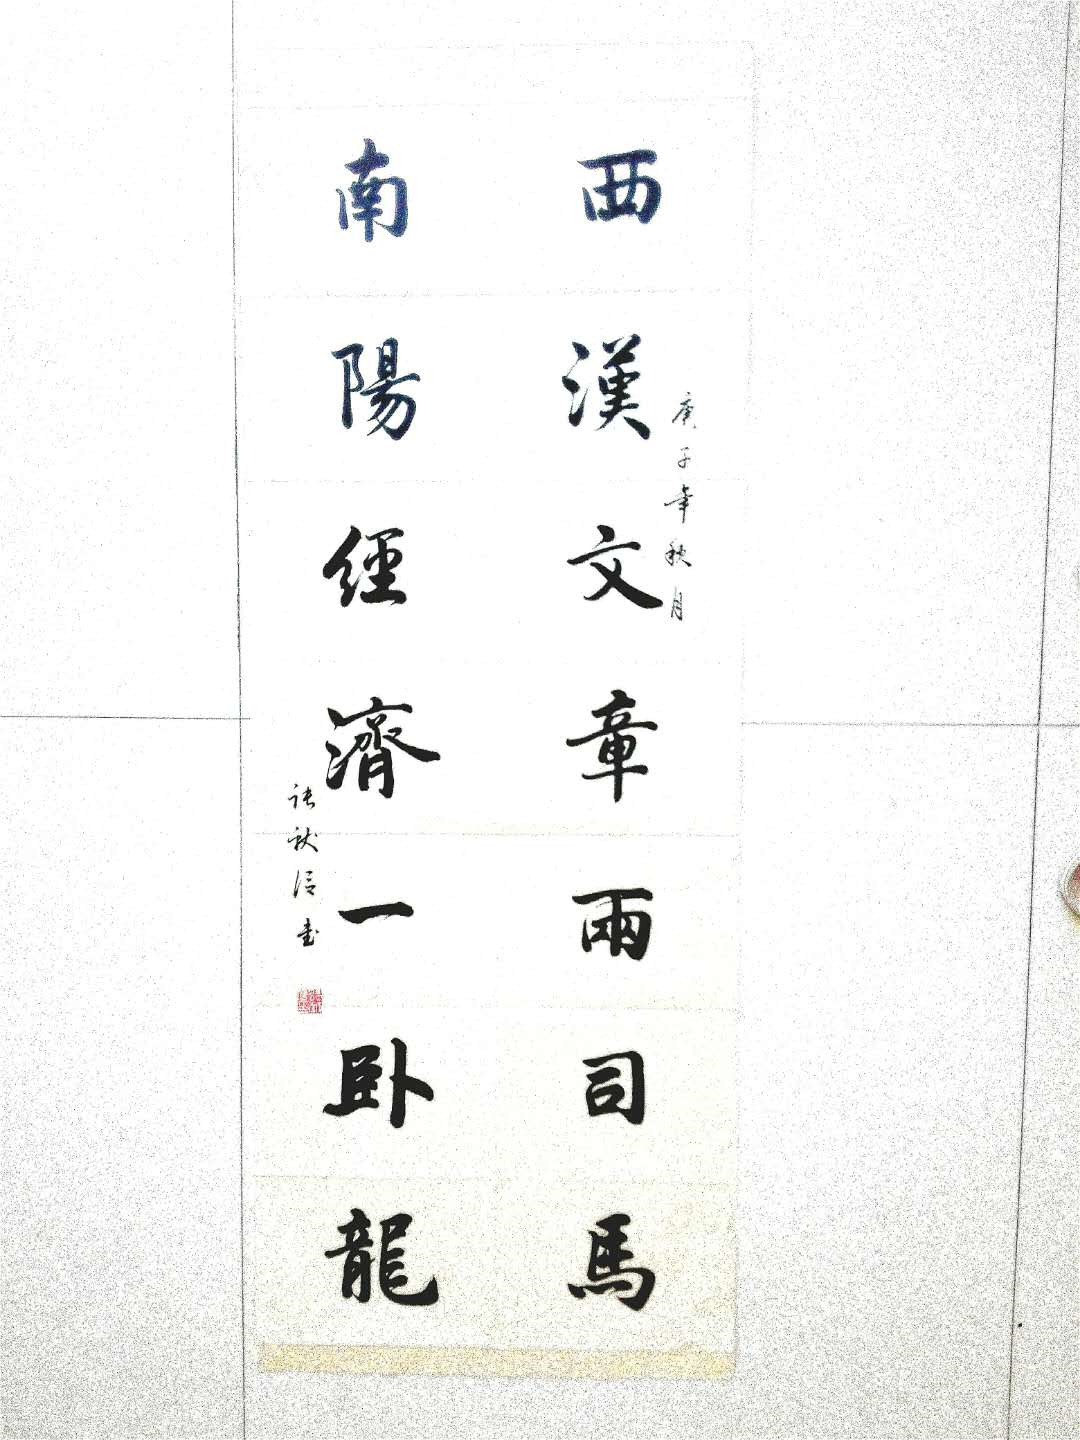 庚子年秋月
西漢文章兩司馬
南陽經濟一臥龍
张秋信書